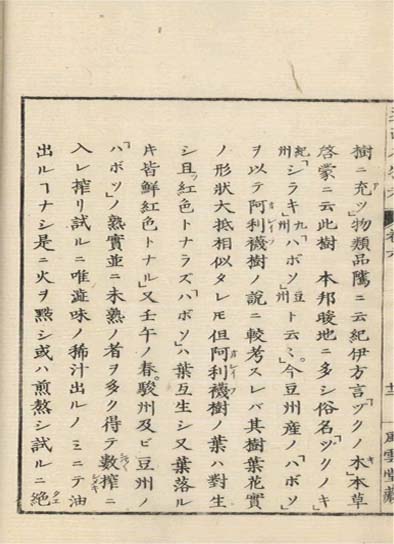 樹ニ充ツ」物類品隲ニ云紀伊方言ヅクノ木」本草
啓蒙ニ云此樹 本邦暖地ニ多シ俗名「ヅクノキ」
紀州「シラキ」九州「ハボソ」豆州ト云ミ。今豆州産ノ「ハボソ」
ヲ以テ阿利襪樹ノ說ニ較考スレバ其樹葉花實
ノ形狀大抵相似タレ𪜈但阿利襪樹ノ葉ハ對生
シ且ツ紅色トナラズ「ハボソ」ハ葉互生シ又葉落ル
𪜈皆鮮紅色トナル」又壬午ノ春。駿州及ビ豆州ノ
「ハボソ」ノ熟實並ニ未熟ノ者ヲ多ク得テ數搾ニ
入レ搾リ試ルニ唯澁味ノ稀汁出ルノミニテ油
出ルヿナシ是ニ火ヲ點シ或ハ煎熬シ試ルニ絕
風雲堂藏